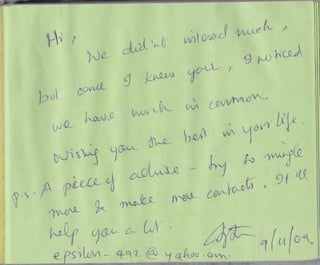 Hi,
We didn't interact much,
but once I knew you, I noticed
we have much in common.
Wishing you the best in your life.
P.S. A piece of advise - try to mingle
more & make more contacts. It'll
help you a lot.
epsilon_492@yahoo.com
9/11/09